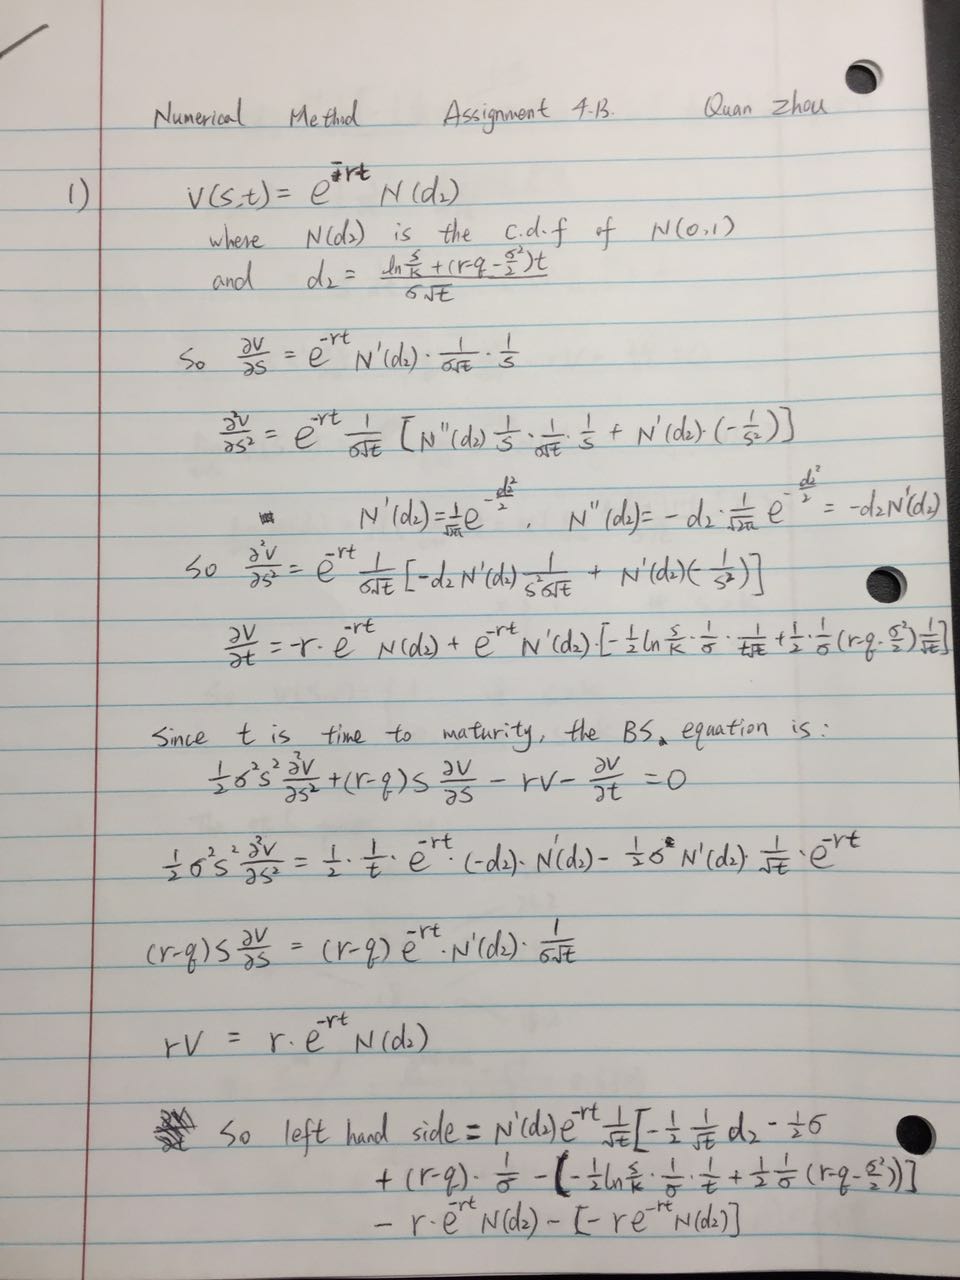 Numerical Method Assignment 4-B. Quan Zhou
1) V(s,t) = e^{-rt} N(d₂)
where N(d₂) is the c.d.f of N(0,1)
and d₂ = \frac{ln\frac{s}{k} + (r-q-\frac{σ²}{2})t}{σ√t}
So \frac{∂V}{∂S} = e^{-rt} N'(d₂) · \frac{1}{σ√t} · \frac{1}{S}
\frac{∂²V}{∂S²} = e^{-rt} \frac{1}{σ√t} [N''(d₂) \frac{1}{S} · \frac{1}{σ√t} · \frac{1}{S} + N'(d₂) · (-\frac{1}{S²})]
N'(d₂) = \frac{1}{√2π} e^{-\frac{d₂²}{2}}, N''(d₂) = -d₂ · \frac{1}{√2π} e^{-\frac{d₂²}{2}} = -d₂N'(d₂)
So \frac{∂²V}{∂S²} = e^{-rt} \frac{1}{σ√t} [-d₂ N'(d₂) \frac{1}{S²σ√t} + N'(d₂)(-\frac{1}{S²})]
\frac{∂V}{∂t} = -r · e^{-rt} N(d₂) + e^{-rt} N'(d₂) · [-\frac{1}{2} ln\frac{s}{k} · \frac{1}{σ} · \frac{1}{t√t} + \frac{1}{2} · \frac{1}{σ} (r-q-\frac{σ²}{2}) \frac{1}{√t}]
Since t is time to maturity, the BS equation is:
\frac{1}{2} σ²S² \frac{∂²V}{∂S²} + (r-q)S \frac{∂V}{∂S} - rV - \frac{∂V}{∂t} = 0
\frac{1}{2} σ²S² \frac{∂²V}{∂S²} = \frac{1}{2} · \frac{1}{t} · e^{-rt} · (-d₂) · N'(d₂) - \frac{1}{2} σ N'(d₂) · \frac{1}{√t} · e^{-rt}
(r-q)S \frac{∂V}{∂S} = (r-q) e^{-rt} · N'(d₂) · \frac{1}{σ√t}
rV = r · e^{-rt} N(d₂)
So left hand side = N'(d₂)e^{-rt} \frac{1}{√t} [-\frac{1}{2} \frac{1}{√t} d₂ - \frac{1}{2}σ
+ (r-q) · \frac{1}{σ} - (-\frac{1}{2} ln\frac{s}{k} · \frac{1}{σ} · \frac{1}{t} + \frac{1}{2} \frac{1}{σ} (r-q-\frac{σ²}{2}))]
- r · e^{-rt} N(d₂) - [-re^{-rt} N(d₂)]